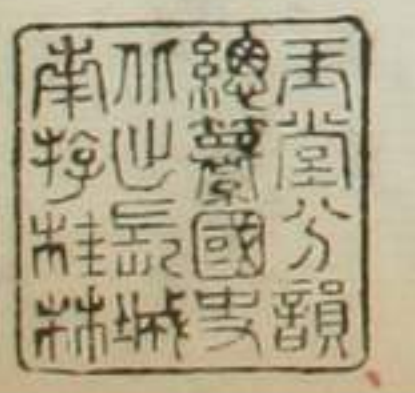 玉堂分韻
總纂國史
北出長城
南斿桂林